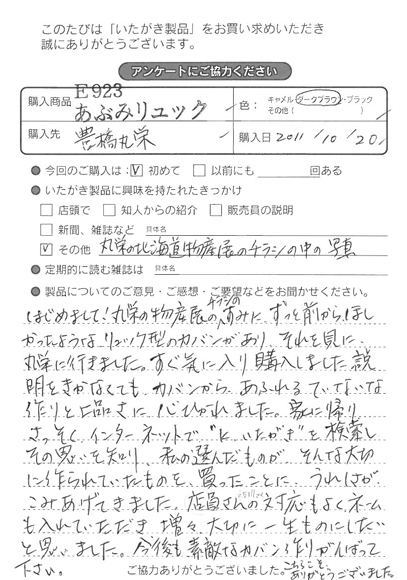 このたびは「いたがき製品」をお買い求めいただき
誠にありがとうございます。
アンケートにご協力ください
購入商品 E923 あぶみリュック
色： キャメル・ダークブラウン・ブラック
その他（ ）
購入先 豊橋丸栄
購入日 2011/10/20
● 今回のご購入は： ☑ 初めて □ 以前にも 回ある
● いたがき製品に興味を持たれたきっかけ
□ 店頭で □ 知人からの紹介 □ 販売員の説明
□ 新聞、雑誌など 具体名
☑ その他 丸栄の北海道物産展のチラシの中の写真
● 定期的に読む雑誌は 具体名
● 製品についてのご意見・ご感想・ご要望などをお聞かせください。
はじめまして！丸栄の物産展のチラシのすみに、ずっと前からほし
かったようなリュック型のカバンがあり、それを見に、
丸栄に行きました。すぐ気に入り購入しました。説
明をきかなくても、カバンから、あふれるていねいな
作りと上品さに心ひかれました。家に帰り
さっそく、インターネットで"いたがき"を検索し
その思いを知り、私の選んだものが、そんな大切
に作られていたものを、買ったことに、うれしさが
こみあげてきました。店員さんの対応もよく、ネーム
も入れていただき、増々、大切に一生ものにしたい
と思いました。今後も素敵なカバン作りがんばって
下さい。
ご協力ありがとうございました。こちらこそ、
ありがとうございました。